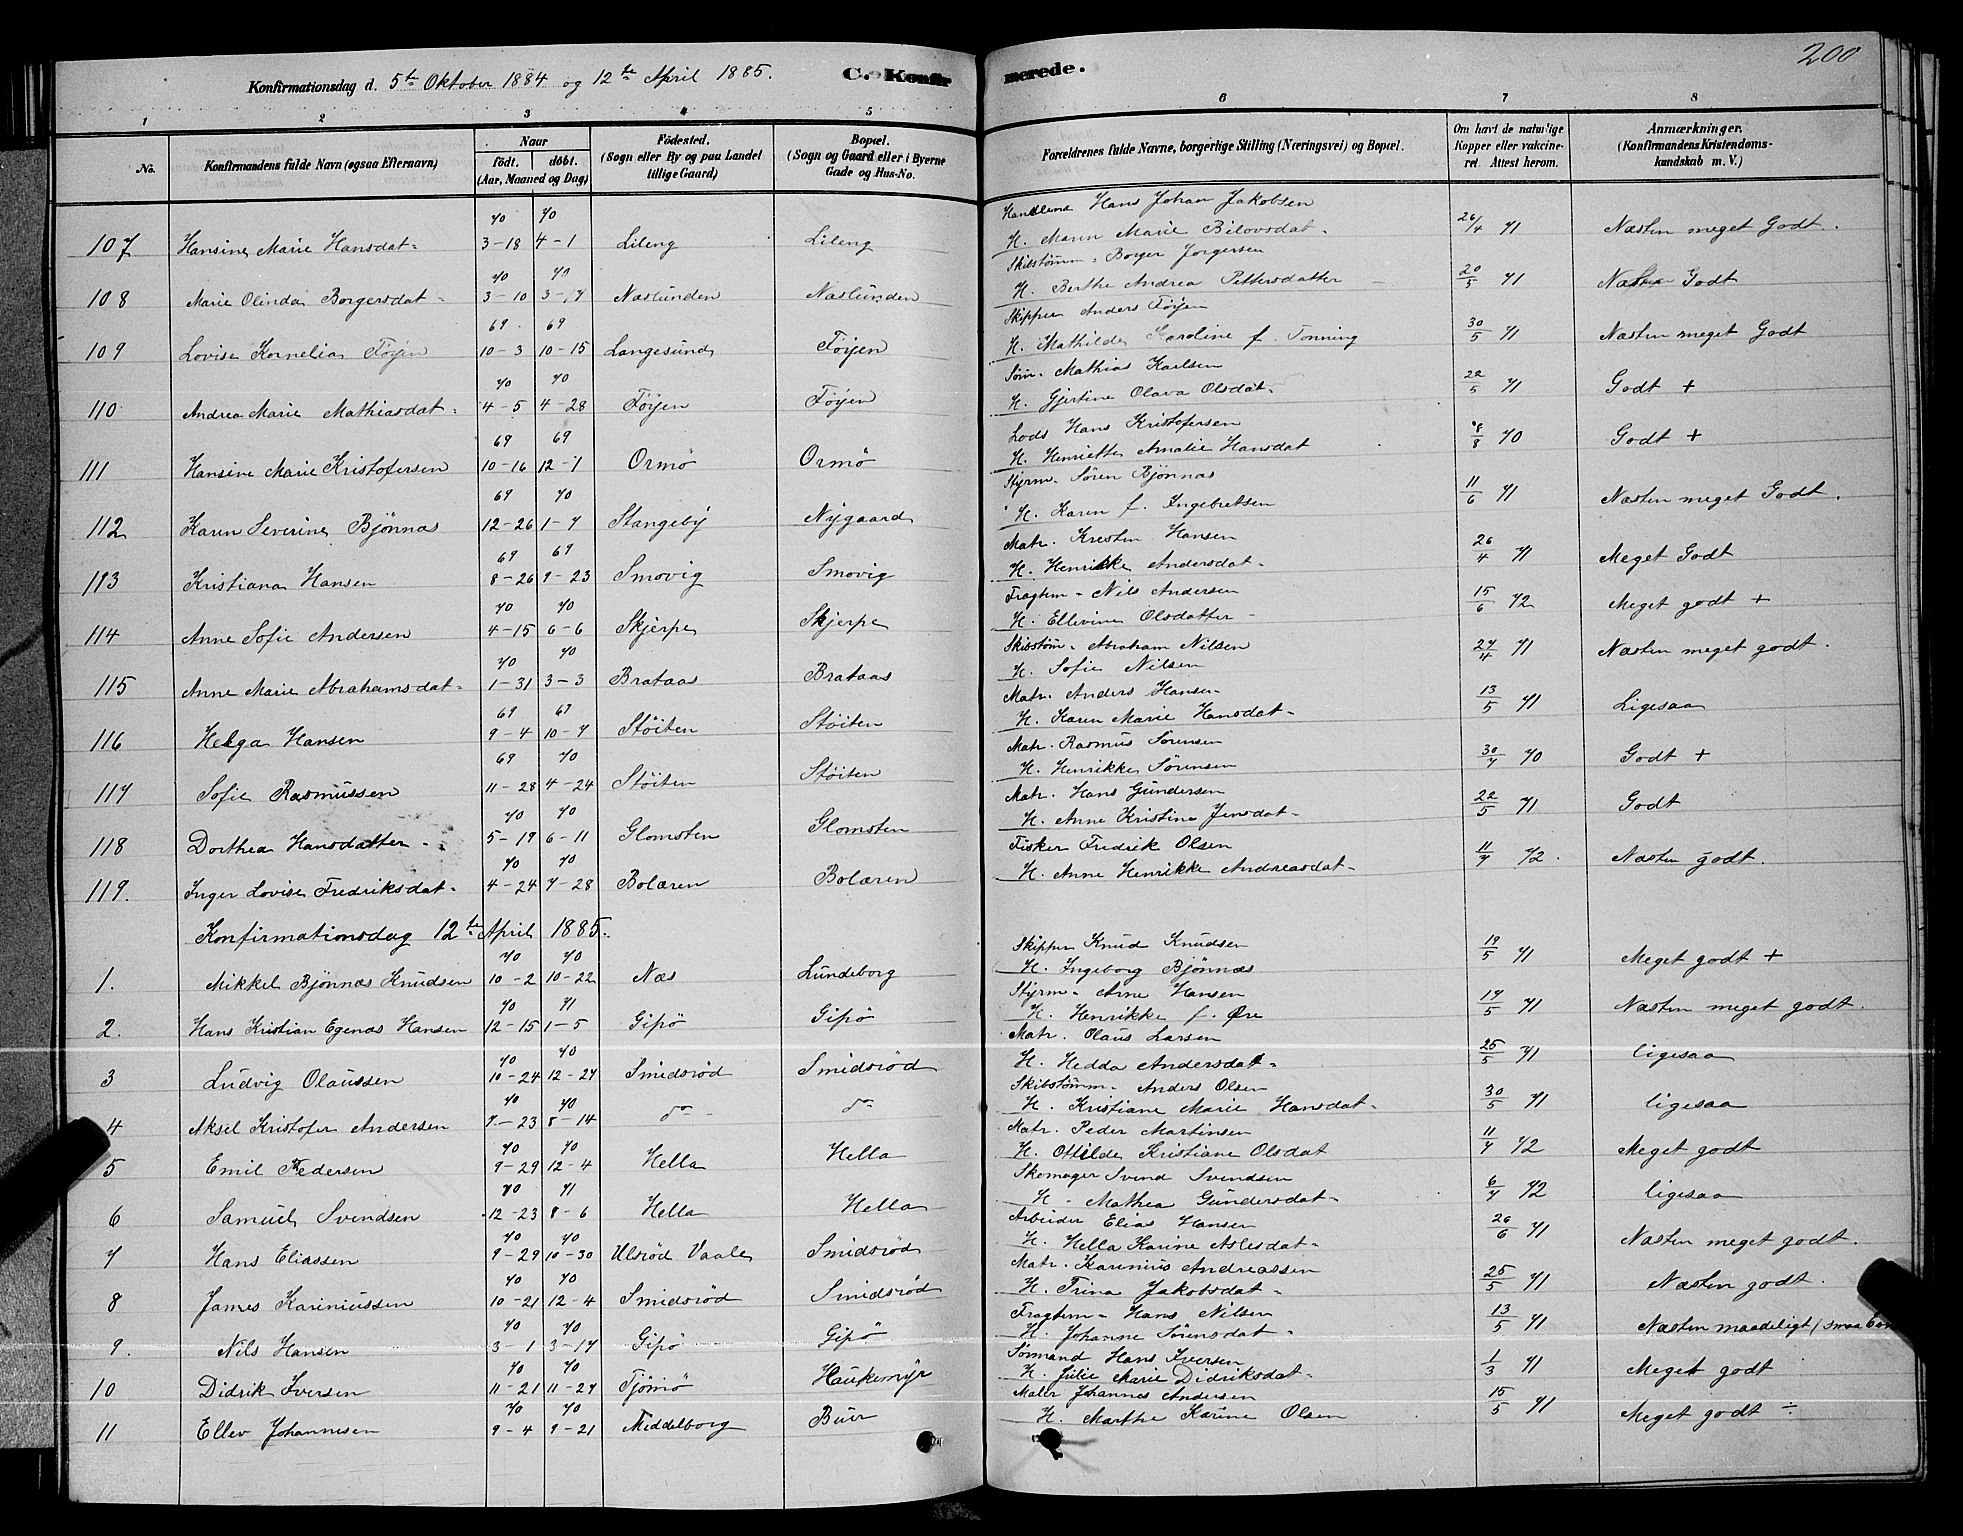 200
Konfirmationsdag d. 5te Oktober 1884 og 12te April 1885. C. Konfirmerede.
1 2 3 4 5 6 7 8
No. Konfirmandens fulde Navn (ogsaa Efternavn) Naar født. døbt. (Aar, Maaned og Dag) Fødested. (Sogn eller By og paa Landet tillige Gaard) Bopæl. (Sogn og Gaard eller i Byerne Gade og Hus-No. Forældrenes fulde Navne, borgerlige Stilling (Næringsvei) og Bopæl. Om havt de natulige Kopper eller vakcineret. Attest herom. Anmærkninger. (Konfirmandens Kristendomskundskab m. V.)
70 70 Hans Johan Jakobsen
107 Hansine Marie Hansdat- 3-18 4-1 Lileng Lileng H. Maren Marie 26/4 71 Næsten meget Godt.
70 70 Skibstømm- Borger Jorgersen
108 Marie Olinda Borgersdat- 3-10 3-17 Naslunden Naslunden H. Berthe Andrea Pettersdatter 20/5 71 Næsten Godt
69 69 Skipper Anders Føijen
109 Lovise Kornelia Føijen 10-3 10-15 Langesund Føijen H. Mathilde Karoline f. Tonning 30/5 71 Næsten meget Godt
70 70 Søm- Mathias Karlsen
110 Andrea Marie Mathiasdat- 4-5 4-28 Føijen Føijen H. Gjertine Olava Olsdat- 22/5 71 Godt +
69 69 Lods Hans Kristofersen
111 Hansine Marie Kristofersen 10-16 12-1 Ormø Ormø H. Henriette Amalie Hansdat 8/8 70 Godt +
69 70 Styrm- Søren Bjønnæs
112 Karen Severine Bjønnæs 12-26 1-7 Stangeby Nygaard H. Karen f. Ingebretsen 11/6 71 Næsten meget Godt.
69 69 Matr. Kresten Hansen
113 Kristiana Hansen 8-26 9-23 Smovig Smovig H. Henrikke Andersdat- 26/4 71 Meget Godt
70 70 Fragtem- Nils Andersen
114 Anne Sofie Andersen 4-15 6-6 Skjerpe Skjerpe H. Ellevine Olsdatter 15/6 72 Meget godt +
70 70 Skibstøm- Abraham Nilsen
115 Anne Marie Abrahamsdat- 1-31 3-3 Brataas Brataas H. Sofie Nilsen 27/4 71 Næsten meget godt.
69 69 Matr. Anders Hansen
116 Helga Hansen 9-4 10-7 Støiten Støiten H. Karen Marie Hansdat- 13/5 71 Ligesaa
69 70 Matr. Rasmus Sørensen
117 Sofie Rasmussen 11-28 4-24 Støiten Støiten H. Henrikke Sørensen 30/7 70 Godt +
70 70 Matr. Hans Gundersen
118 Dorthea Hansdatter 5-19 6-11 Glomsten Glomsten H. Anne Kristine Jensdat- 22/5 71 Godt
70 70 Fisker Fredrik Olsen
119. Inger Lovise Fredriksdat- 4-24 7-28 Bolæren Bolæren H. Anne Henrikke Andreasdat- 11/7 72. Næsten godt.
Konfirmationsdag 12te April 1885.
70 70 Skipper Knud Knudsen
1. Mikkel Bjønnæs Knudsen 10-2 10-22 Næs Lundeborg H. Ingeborg Bjønnæs 19/5 71 Meget godt +
70 71 Styrm- Arne Hansen
2. Hans Kristian Egenæs Hansen 12-15 1-5 Gipø Gipø H. Henrikke f. Øre 17/5 71 Næsten meget godt.
70 70 Matr. Olaus Larsen
3 Ludvig Olaussen 10-24 12-27 Smidsrød Smidsrød H. Hedda Andersdat- 25/5 71 ligesaa
70 70 Skibstømm- Anders Olsen
4 Aksel Kristofer Andersen 7-23 8-14 do do H. Kristiane Marie Hansdat- 30/5 71 ligesaa
70 70 Matr. Peder Martinsen
5 Emil Pedersen 9-29 12-4 Hella Hella H. Otilde Kristiane Olsdat 11/7 72 Meget godt
70 71 Skomager Svend Svendsen
6 Samuel Svendsen 12-23 8-6 Hella Hella H. Mathea Gundersdat- 6/7 72 ligesaa
70 70 Arbeider Elias Hansen
7 Hans Eliassen 9-29 10-30 Ulsrød Vaale Smidsrød H. Hella Karine Aslesdat- 26/6 71 Næsten meget godt.
70 70 Matr. Karinius Andreassen
8 James Kariniussen 10-21 12-4 Smidsrød Smidsrød H. Trina Jakobsdat- 25/5 71 Næsten godt.
70 70 Fragtem- Hans Nilsen
9. Nils Hansen 3-1 3-17 Gipø Gipø H. Johanne Sørensdat- 13/5 71 Næsten maadeligt
70 70 Sømand Hans Iversen
10 Didrik Iversen 11-21 11-27 Tjømø Haukemyr H. Julie Marie Didriksdat- 1/3 71 Meget godt
70 70 Maler Johannes Andersen
11 Ellev Johannesen 9-4 9-21 Middelborg Buer H. Marthe Karine Olsen 15/5 71 Meget godt ÷